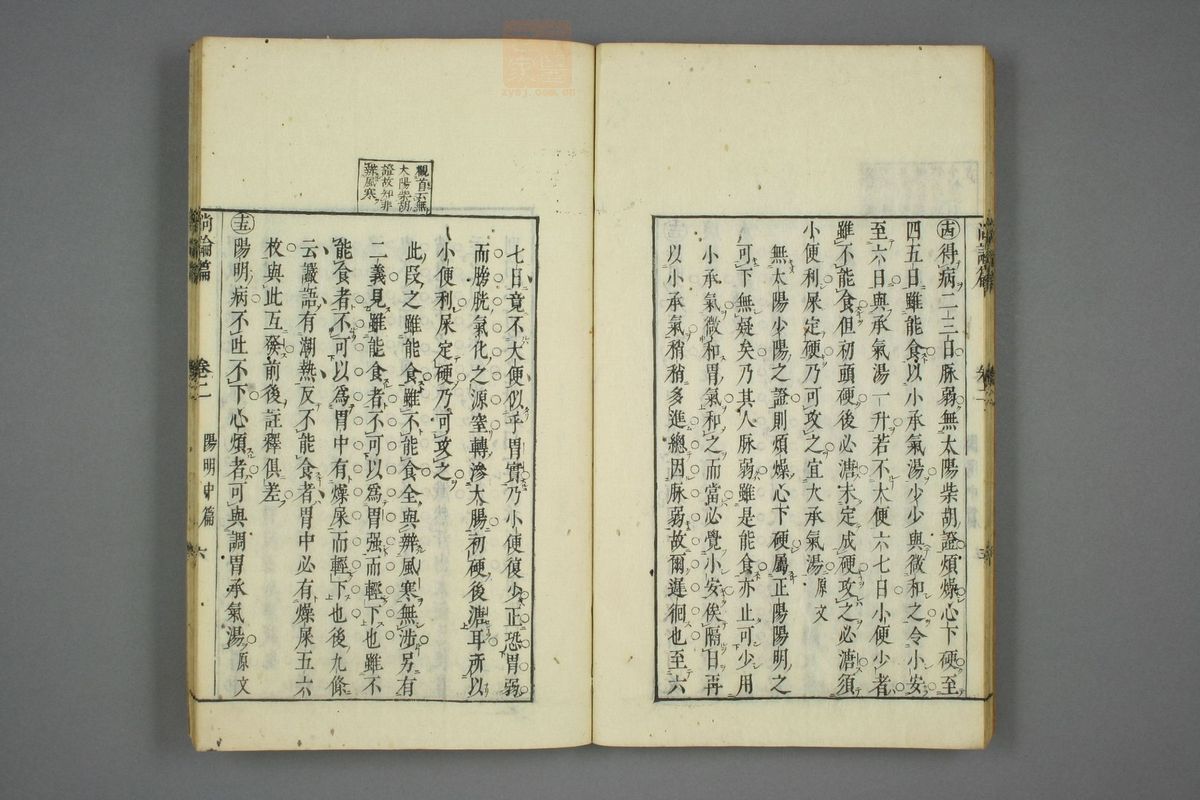 (十四)得病二三日脉弱無太陽柴胡證煩燥心下硬至
四五日雖能食以小承氣湯少少與微和之令小安
至六日與承氣湯一升若不大便六七日小便少者
雖不能食但初頭硬後必溏未定成硬攻之必溏須
小便利屎定硬乃可攻之宜大承氣湯原文
無太陽少陽之證則煩燥心下硬屬正陽陽明之
可下無疑矣乃其人脉弱雖是能食亦止可少用
小承氣微和胃氣和之而當必覺小安俟隔日再
以小承氣稍稍多進總因脉弱故爾遲徊也至六
七日竟不大便似乎胃實乃小便復少正恐胃弱
而膀胱氣化之源窒轉滲大腸初硬後溏耳所以
小便利屎定硬乃可攻之
此段之雖能食雖不能食全與辨風寒無涉另有
二義見雖能食者不可以爲胃强而輕下也雖不
能食者不可以爲胃中有燥屎而輕下也後九條
云讝語有潮熱反不能食者胃中必有燥屎五六
枚與此互發前後註釋俱差
(十五)陽明病不吐不下心煩者可與調胃承氣湯原文
觀首云無
太陽柴胡
證故知非
辨風寒
尚論篇 卷二 陽明中篇 六
zysj.com.cn